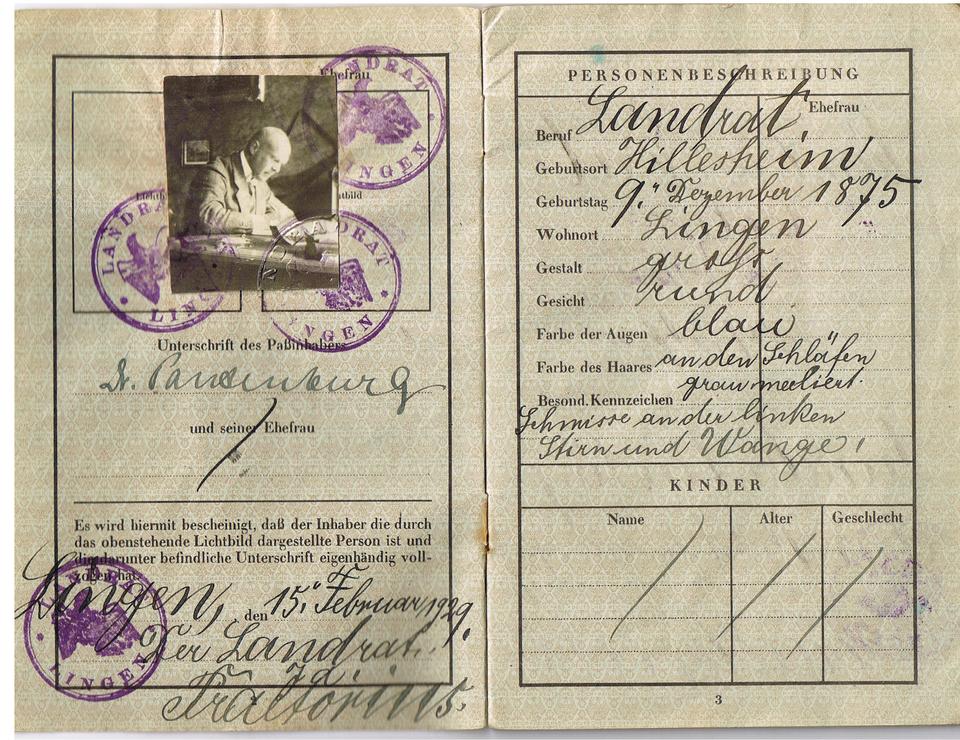 Ehefrau
LANDRAT
LINGEN
LANDRAT
LINGEN
LANDRAT
LINGEN
Unterschrift des Paßinhabers
Dr. Pantenburg
und seiner Ehefrau
Es wird hiermit bescheinigt, daß der Inhaber die durch
das obenstehende Lichtbild dargestellte Person ist und
die darunter befindliche Unterschrift eigenhändig voll-
zogen hat.
Lingen, den 15. Februar 1929.
Der Landrat.
LANDRAT
LINGEN
PERSONENBESCHREIBUNG
Ehefrau
Beruf Landrat.
Geburtsort Hillesheim
Geburtstag 9. Dezember 1875
Wohnort Lingen
Gestalt groß
Gesicht rund
Farbe der Augen blau
Farbe des Haares an den Schläfen
grau meliert.
Besond. Kennzeichen
Schmisse an der linken
Stirn und Wange.
KINDER
Name Alter Geschlecht
3